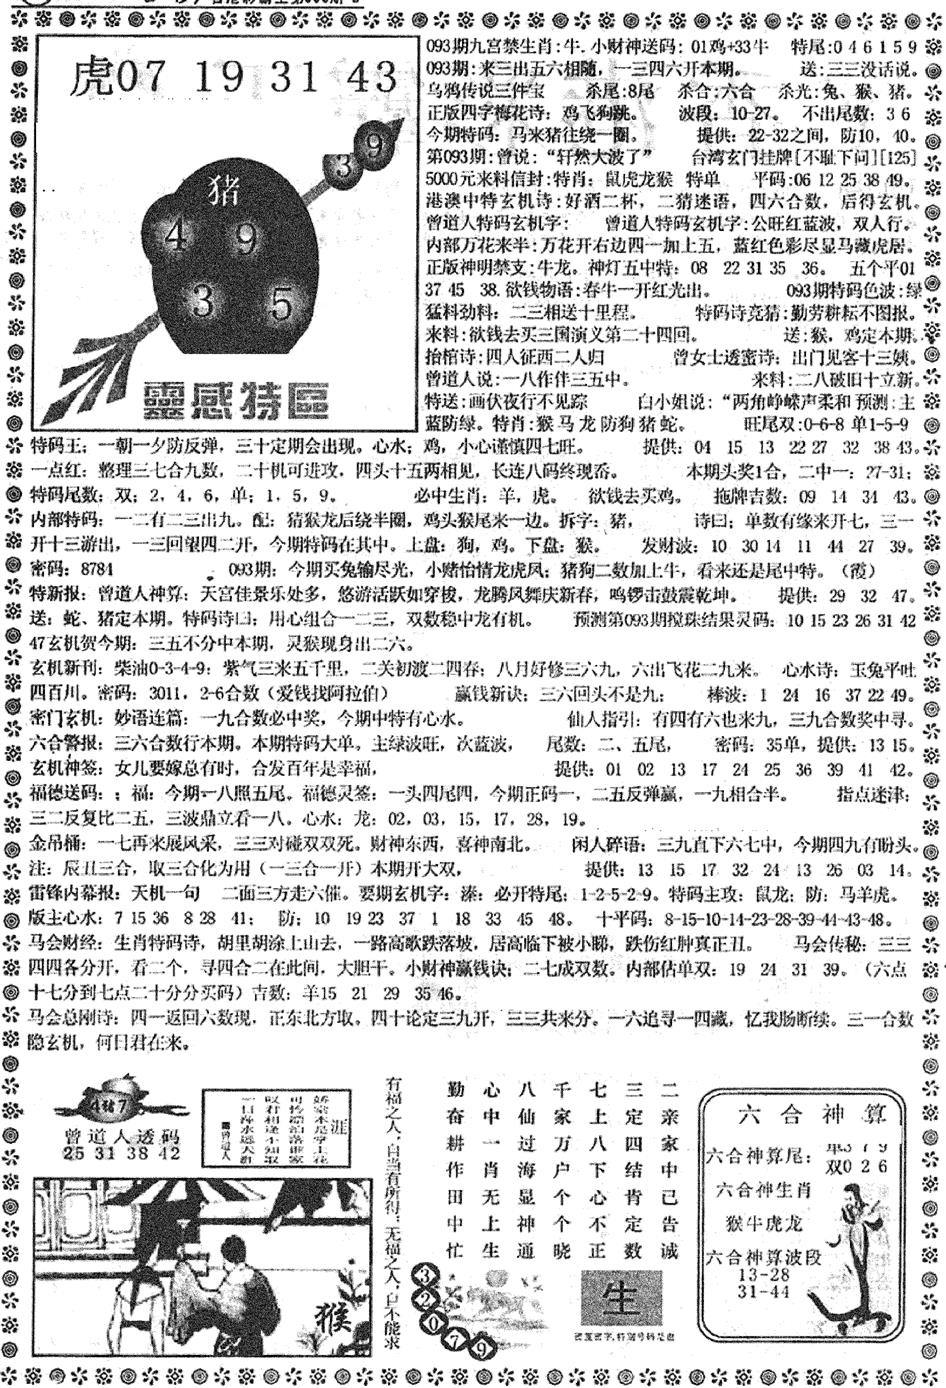 虎07 19 31 43
9
3
猪
4 9
3 5
靈感特區
093期九宫禁生肖:牛.小财神送码: 01鸡+33牛 特尾:0 4 6 1 5 9
093期:来三出五六相随，一三四六开本期。 送:三三没话说。
乌鸦传说三件宝 杀尾:8尾 杀合:六合 杀光:兔、猴、猪。
正版四字梅花诗: 鸡飞狗跳。 波段: 10-27。 不出尾数: 3 6
今期特码: 马来猪往绕一圈。 提供: 22-32之间, 防10, 40。
第093期:曾说:“轩然大波了” 台湾玄门挂牌[不耻下问][125]
5000元来料信封:特肖: 鼠虎龙猴 特单 平码:06 12 25 38 49。
港澳中特玄机诗:好酒二杯, 二猜迷语, 四六合数, 后得玄机。
曾道人特码玄机字: 曾道人特码玄机字:公旺红蓝波, 双人行。
内部万花来半:万花开右边四一加上五, 蓝红色彩尽显马藏虎居。
正版神明禁支:牛龙。神灯五中特: 08 22 31 35 36。 五个平01
37 45 38.欲钱物语:春牛一开红光出。 093期特码色波:绿
猛料劲料: 二三相送十里程。 特码诗竞猜:勤劳耕耘不图报。
来料:欲钱去买三国演义第二十四回。 送:猴, 鸡定本期.
抬棺诗:四人征西二人归 曾女士透蜜诗: 出门见客十三姨。
曾道人说:一八作伴三五中。 来料:二八破旧十立新。
特送:画伏夜行不见踪 白小姐说:“两角峥嵘声柔和 预测:主
蓝防绿。特肖:猴 马 龙 防狗 猪 蛇。 旺尾双:0-6-8 单1-5-9
特码王: 一朝一夕防反弹, 三十定期会出现。心水; 鸡, 小心谨慎四七旺。 提供: 04 15 13 22 27 32 38 43。
一点红: 整理三七合九数, 二十机可进攻, 四头十五两相见, 长连八码终现岙。 本期头奖1合, 二中一; 27-31;
特码尾数: 双; 2, 4, 6, 单; 1, 5, 9。 必中生肖: 羊, 虎。 欲钱去买鸡。 拖牌吉数: 09 14 34 43。
内部特码: 一二有二三出九。配: 猪猴龙后绕半圈, 鸡头猴尾来一边。拆字: 猪, 诗曰; 单数有缘来开七, 三一
开十三游出, 一三回望四二开, 今期特码在其中。上盘: 狗, 鸡。下盘: 猴。 发财波: 10 30 14 11 44 27 39。
密码: 8784 093期: 今期买兔输尽光, 小赌怡情龙虎凤; 猪狗二数加上牛, 看来还是尾中特。(霞)
特新报: 曾道人神算: 天宫佳景乐处多, 悠游活跃如穿梭, 龙腾凤舞庆新春, 鸣锣击鼓震乾坤。 提供: 29 32 47。
送: 蛇、猪定本期。特码诗曰: 用心组合一二三, 双数稳中龙有机。 预测第093期搅珠结果灵码: 10 15 23 26 31 42
47玄机贺今期: 三五不分中本期, 灵猴现身出二六。
玄机新刊: 柴油0-3-4-9: 紫气三来五千里, 二关初渡二四春; 八月好修三六九, 六出飞花二九来。 心水诗: 玉兔平吐
四百川。密码: 3011, 2-6合数(爱钱找阿拉伯) 赢钱新诀; 三六回头不是九; 棒波: 1 24 16 37 22 49。
密门玄机: 妙语连篇: 一九合数必中奖, 今期中特有心水。 仙人指引: 有四有六也来九, 三九合数奖中寻。
六合警报: 三六合数行本期。本期特码大单。主绿波旺, 次蓝波, 尾数: 二、五尾, 密码: 35单, 提供: 13 15。
玄机神签: 女儿要嫁总有时, 合发百年是幸福, 提供: 01 02 13 17 24 25 36 39 41 42。
福德送码: ; 福: 今期一八照五尾。福德灵签: 一头四尾四, 今期正码一, 二五反弹赢, 一九相合半。 指点迷津;
三二反复比二五, 三波鼎立看一八。心水: 龙; 02, 03, 15, 17, 28, 19。
金吊桶: 一七再来展风采, 三三对碰双双死。财神东西, 喜神南北。 闲人碎语: 三九直下六七中, 今期四九有盼头。
注: 辰丑三合, 取三合化为用(一三合一开)本期开大双, 提供: 13 15 17 32 24 13 26 03 14。
雷锋内幕报: 天机一句 二面三方走六催。要期玄机字: 溱: 必开特尾: 1-2-5-2-9。特码主攻: 鼠龙; 防; 马羊虎。
版主心水: 7 15 36 8 28 41; 防: 10 19 23 37 1 18 33 45 48。 十平码: 8-15-10-14-23-28-39-44-43-48。
马会财经: 生肖特码诗, 胡里胡涂上山去, 一路高歌跌落坡, 居高临下被小睇, 跌伤红肿真正丑。 马会传秘: 三三
四四各分开, 看二个, 寻四合二在此间, 大胆干。小财神赢钱诀; 二七成双数。内部估单双: 19 24 31 39。(六点
十七分到七点二十分分买码)吉数: 羊15 21 29 35 46。
马会总刚诗: 四一返回六数现, 正东北方取。四十论定三九开, 三三共来分。一六追寻一四藏, 忆我肠断续。三一合数
隐玄机, 何日君在来。
4猪7
曾道人透码
25 31 38 42
猴
有福之人, 自当有所得; 无福之人, 自不能求
二亲家中已告诚
三定四结肯定数
七上八下心不正
千家万户个个晓
八仙过海显神通
心中一肖无上生
勤奋耕作田中忙
3
2
0
7
9
生
六合神算
六合神算尾:
双0 2 6
六合神生肖
猴牛虎龙
六合神算波段
13-28
31-44